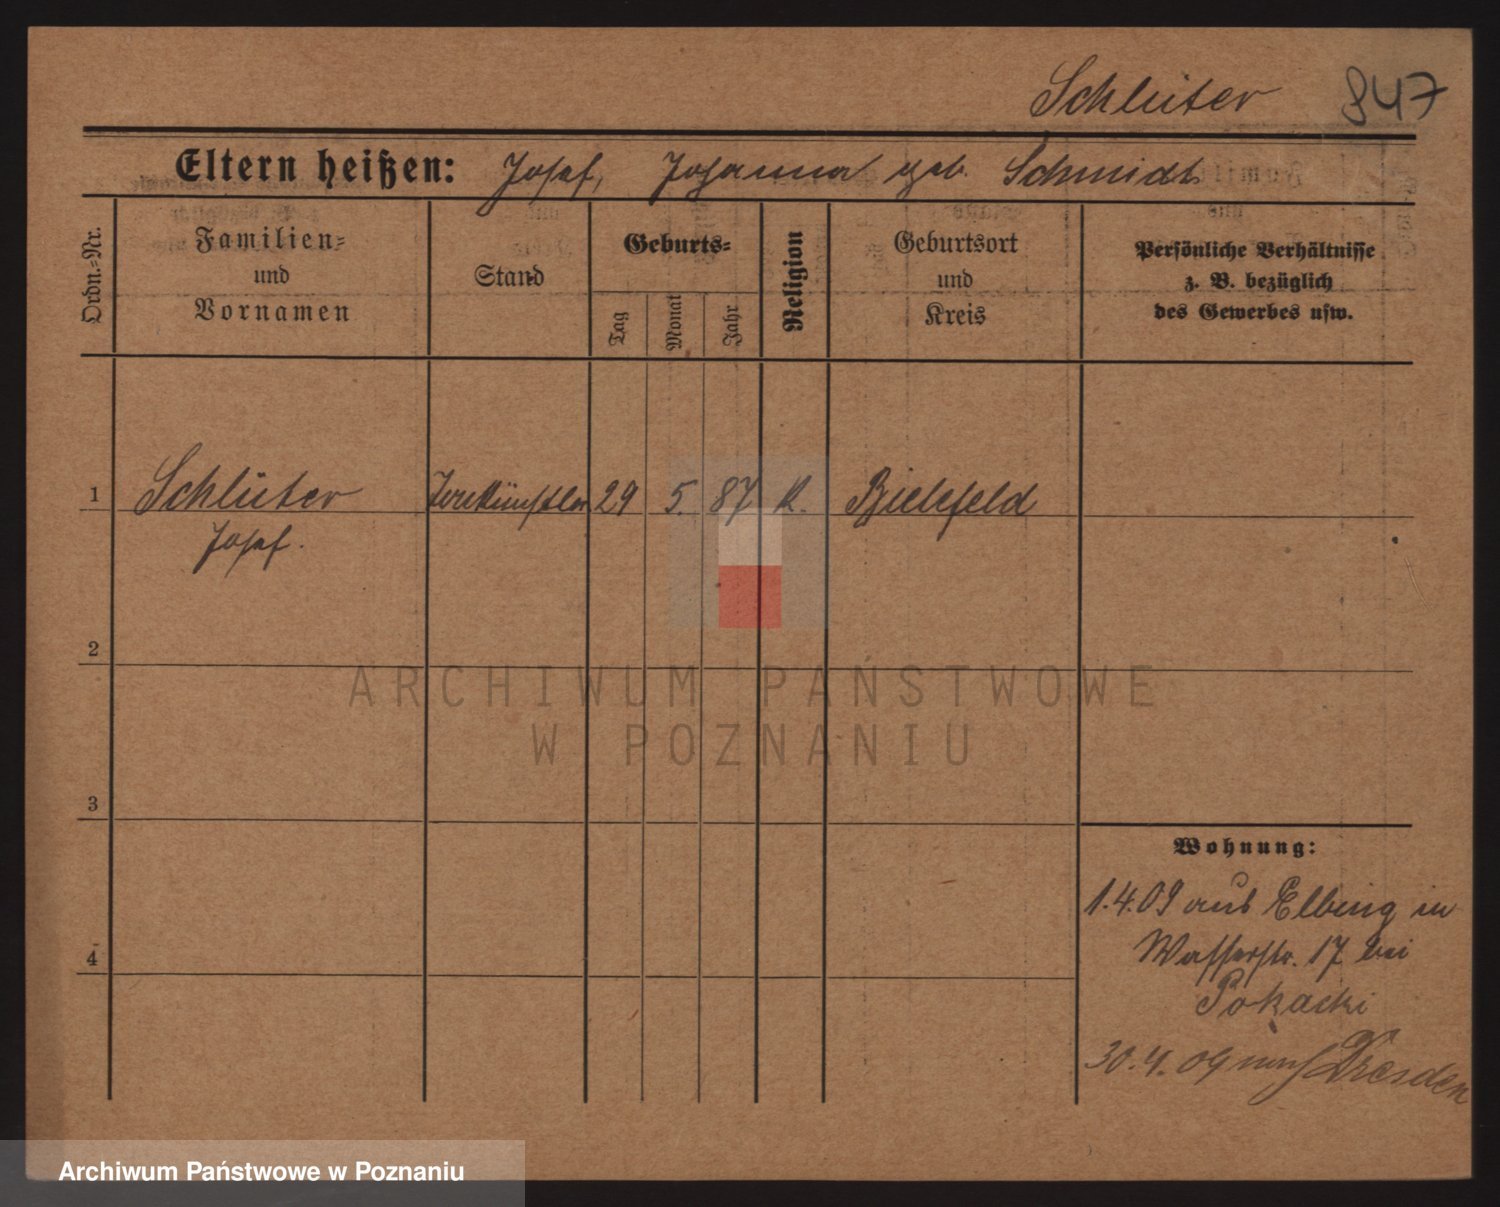 Schlüter 847
Eltern heißen: Josef, Johanna geb. Schmidt
Ordn.-Nr.
Familien-
und
Vornamen
Stand
Geburts-
Tag
Monat
Jahr
Religion
Geburtsort
und
Kreis
Persönliche Verhältnisse
z. B. bezüglich
des Gewerbes usw.
1 Schlüter 29 5. 87 K. Bielefeld
Josef.
2
3
4
Wohnung:
1.4.09 aus Elbing in
Wasserstr. 17 bei
30.4.09 nach Dresden
ARCHIWUM PAŃSTWOWE
W POZNANIU
Archiwum Państwowe w Poznaniu